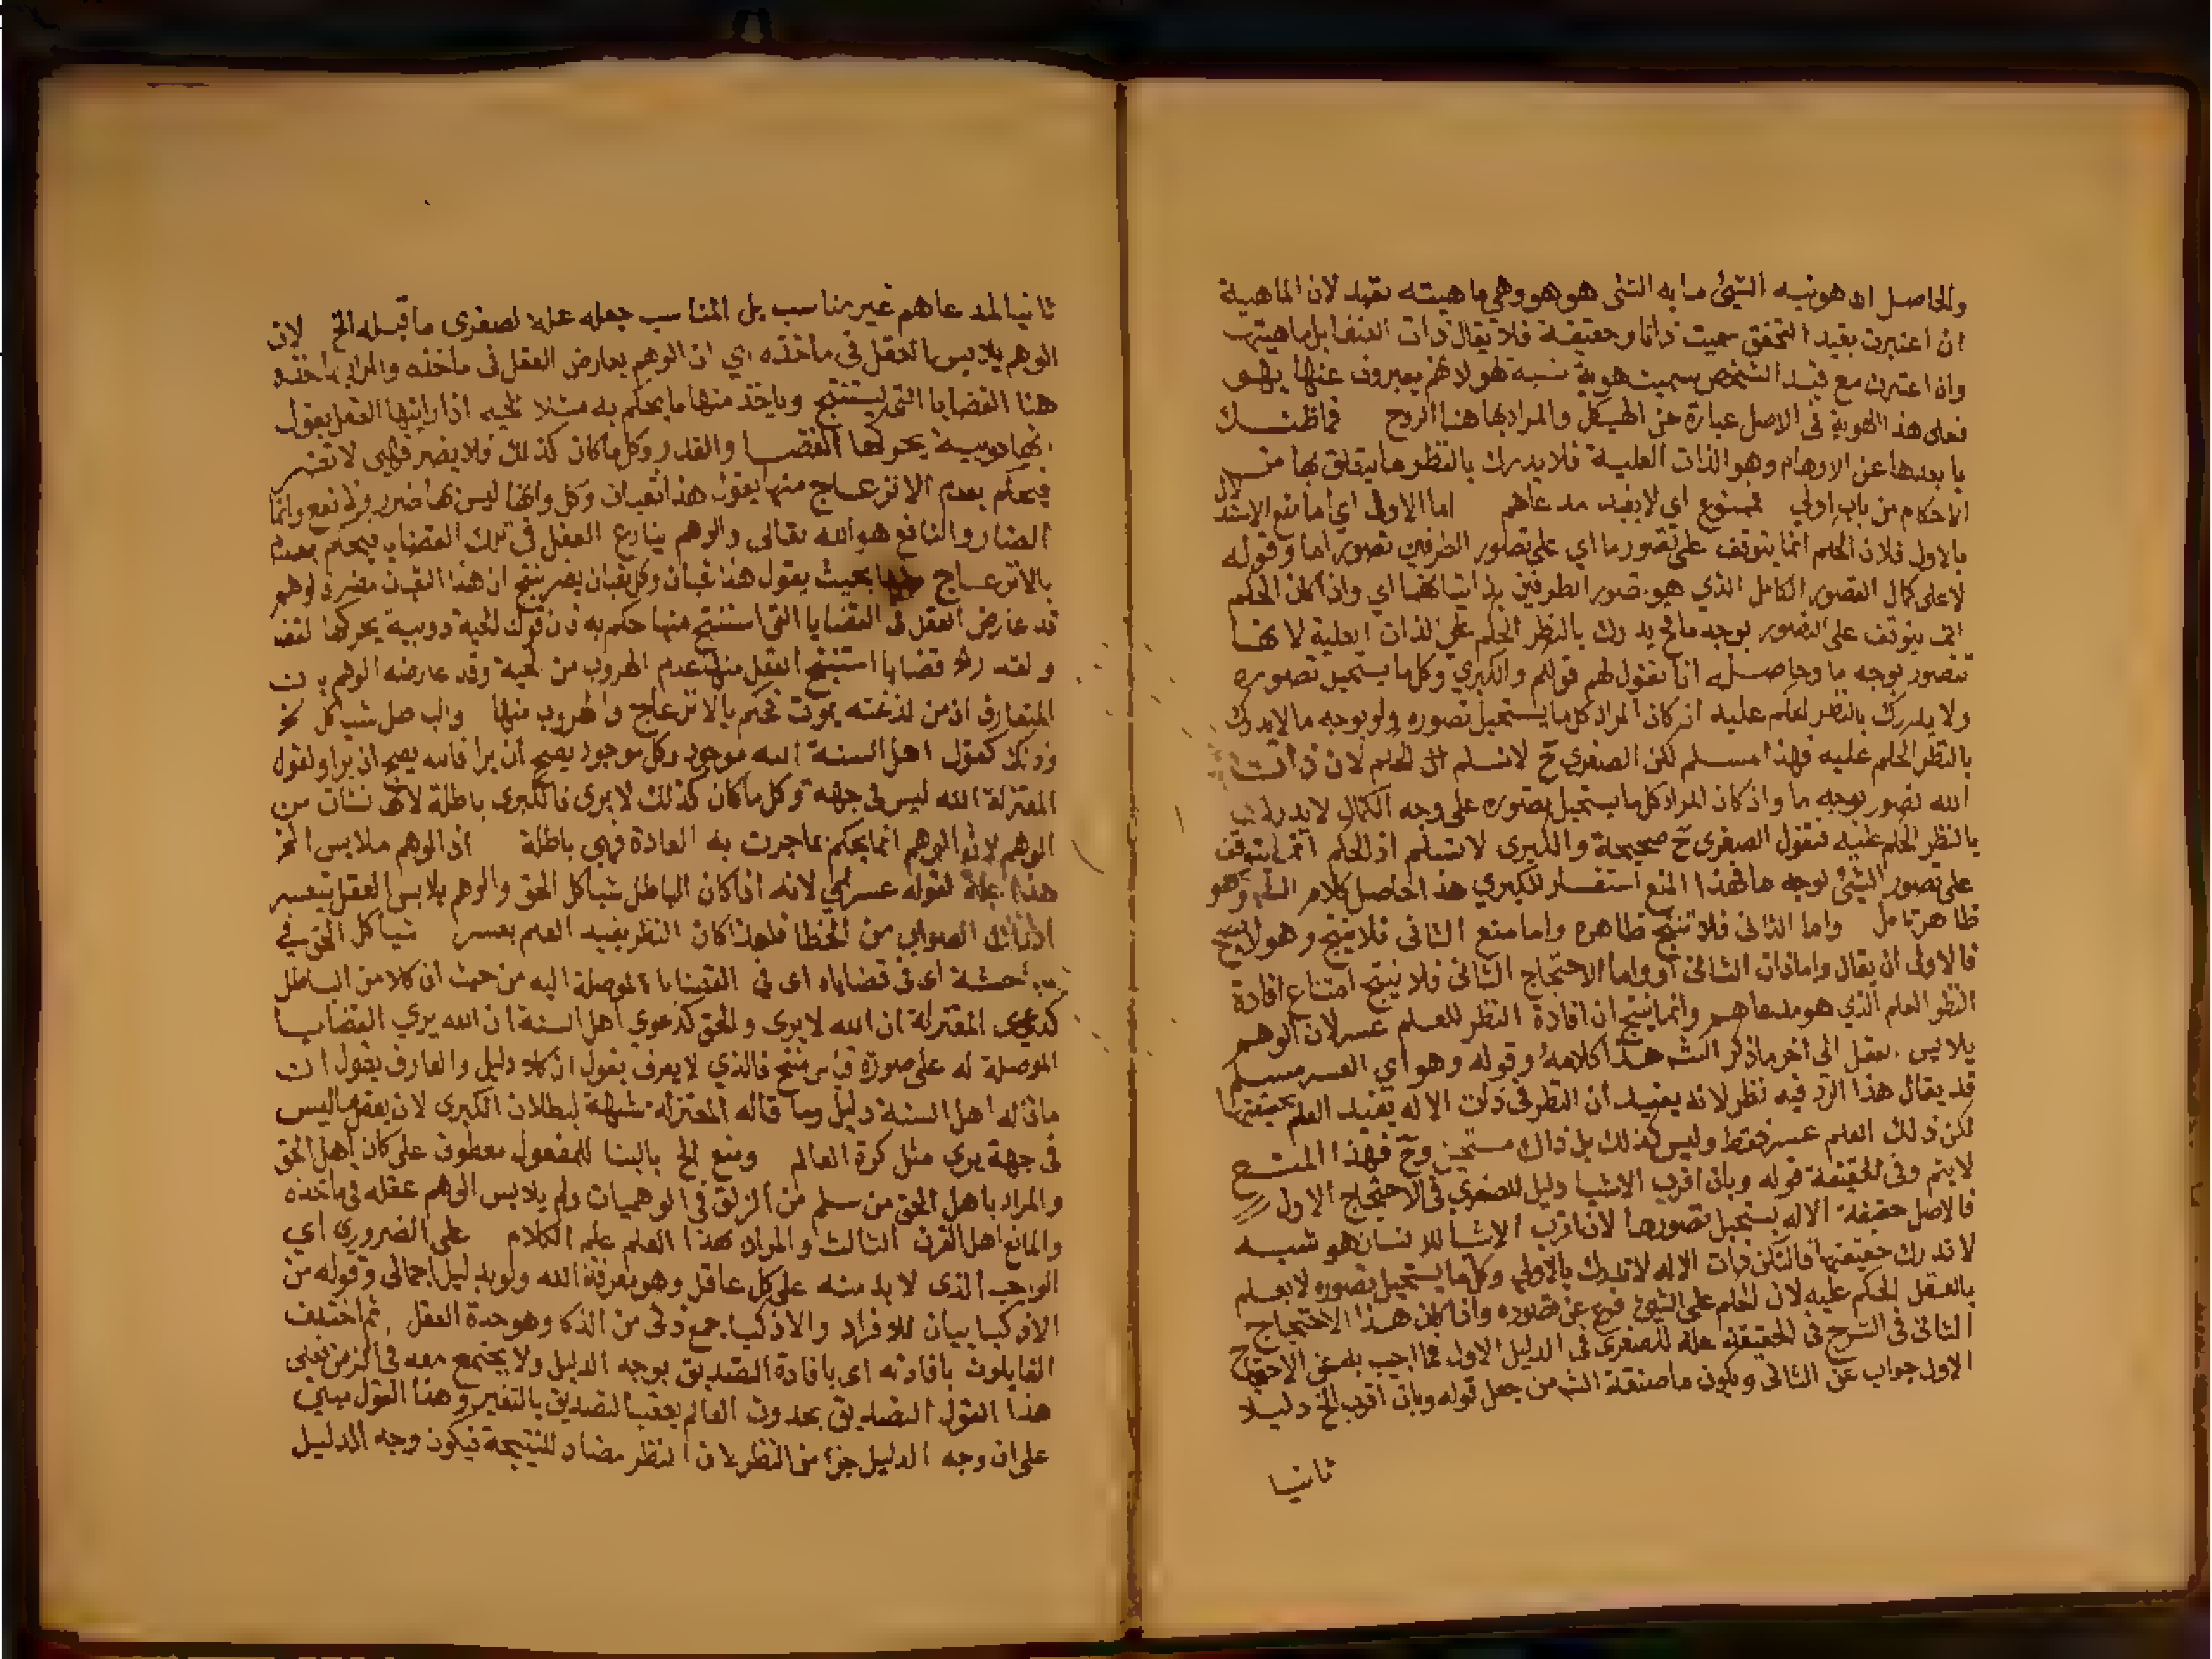 والحاصل ان هوية الشئ ما به الشئ هو هو وهي ماهيته بقيد لان الماهية
ان اعتبرت بقيد التحقق سميت ذاتا وحقيقة فلا يقال ذات العنقا بل ماهيتها
وان اعتبرت مع قيد التشخص سميت هوية نسبة لهو لانهم يعبرون عنها بهو
فعلى هذا الهوية في الاصل عبارة عن الهيكل والمراد بها هنا الروح فما ظنك
بابعدها عن الاوهام وهو الذات العلية فلا يدرك بالنظر ما يتعلق بها من
الاحكام من باب اولي ممنوع اي لا يفيد مدعاهم اما الاول اي اما منع الاستدلال
بالاول فلان الحكم انما يتوقف على تصور ما اي على تصور الطرفين تصورا ما وقوله
لا على كمال التصور الكامل الذي هو تصور الطرفين بذاتياتهما اي واذا كان الحكم
انما يتوقف على التصور بوجه ما فح يدرك بالنظر الحكم على الذات العلية لانها
تتصور بوجه ما وحاصله انا نقول لهم قولكم والكبري وكل ما يستحيل تصوره
ولا يدرك بالنظر الحكم عليه ان كان المراد كل ما يستحيل تصوره ولو بوجه ما لا يدرك
بالنظر الحكم عليه فهذا مسلم لكن الصغري ح لا نسلم لكم لان ذات
الله تصور بوجه ما وان كان المراد كل ما يستحيل تصوره على وجه الكمال لا يدرك
بالنظر الحكم عليه فنقول الصغرى ح صحيحة والكبرى لا تسلم اذ الحكم انما يتوقف
على تصور الشئ بوجه ما فهذا المنع استفسار للكبري هذا حاصل كلام الشم وهو
ظاهر تامل واما الثاني فلا تنتج ظاهره واما منع الثاني فلا ينتج وهو لا يصح
فالاولى ان يقال واما ذات الثاني او واما الاحتجاج الثاني فلا ينتج امتناع افادة
النظر العلم الذي هو مدعاهم وانما ينتج ان افادة النظر للعلم عسر لان الوهم
يلابس العقل الى اخر ما ذكر الشم هذا كلامه وقوله وهو اي العسر مسلم
قد يقال هذا الرد فيه نظر لانه يفيد ان النظر في ذات الاله يفيد العلم بحقيقتها
لكن ذلك العلم عسر فقط وليس كذلك بل ذاك مستحيل وح فهذا المنع
لا يتم وفي الحقيقة قوله وبان اقرب الاشيا دليل للصغري في الاحتجاج الاول
فالاصل حقيقة الاله يستحيل تصورها لان اقرب الاشيا للانسان هو شبه
لا تدرك حقيقتها فالتكن ذات الاله لا تدرك بالاولي وكل ما يستحيل تصوره لا يعلم
بالعقل الحكم عليه لان الحكم على الشئ فرع عن تصوره واذا كان هذا الاحتجاج
الثاني في الشرح في الحقيقة علة للصغرى في الدليل الاول فما اجيب به عن الاحتجاج
الاول جواب عن الثاني ويكون ما صنعه الشم من جعل قوله وبان اقرب الخ دليلا
ثانيا
ثانيا لمدعاهم غير مناسب بل المناسب جعله علة لصغرى ما قبله الخ لان
الوهم يلابس العقل في ماخذه اي ان الوهم يعارض العقل في ماخذه والمراد بماخذه
هنا القضايا التي يستنتج وياخذ منها ما يحكم به مثلا الحية اذا رايتها العقل يقول
انها دويبة يحركها القضا والقدر وكل ما كان كذلك فلا يضر فهي لا تضر
فيحكم بعدم الانزعاج منها يقول هذا ثعبان وكل وانها ليس لها ضرر ولا نفع وانما
الضار والنافع هو الله تعالى والوهم ينازع العقل في تلك القضايا فيحكم بعدم
بالانزعاج منها بحيث يقول هذا ثعبان وكل ثعبان يضر ينتج ان هذا الثعبان مضر فالوهم
قد عارض العقل في القضايا التي استنتج منها حكمه فان قولك الحية دويبة يحركها القضا
والقدر الخ قضايا استنتج العقل منها عدم الهروب من الحية وقد عارضه الوهم بان
المتعارف ان من لدغته يموت فحكم بالانزعاج والهروب منها والباطل شاكل الخ
وذلك كقول اهل السنة الله موجود وكل موجود يصح ان يرا فالله يصح ان يرا ولقول
المعتزلة الله ليس في جهة وكل ما كان كذلك لا يرى فالكبرى باطلة لانها نشات من
الوهم لان الوهم انما يحكم بما جرت به العادة فهي باطلة ان الوهم ملابس الخ
هذا علة لقوله عسر اي لانه اذا كان الباطل شاكل الحق والوهم يلابس العقل يتعسر
ادراك الصواب من الخطا فلهذا كان النظر يفيد العلم بعسر شاكل الحق في
مباحثه اي في قضاياه اي في القضايا الموصلة اليه من حيث ان كلا من الباطل
كدعوى المعتزلة ان الله لا يرى والحق كدعوي اهل السنة ان الله يري القضايا
الموصلة له على صورة قياس منتج فالذي لا يعرف يقول ان كلا دليل والعارف يقول ان
ما قاله اهل السنة دليل وما قاله المعتزلة شبهة لبطلان الكبرى لان بعض ما ليس
في جهة يرى مثل كرة العالم ومنع الخ بالبنا للمفعول معطوف على كان اهل الحق
والمراد باهل الحق من سلم من الزلق في الوهميات ولم يلابس الوهم عقله في ماخذه
والمانع اهل القرن الثالث والمراد بهذا العلم علم الكلام على الضروري اي
الواجب الذي لا بد منه على كل عاقل وهو معرفة الله ولو بدليل اجمالى وقوله من
الاذكيا بيان للافراد والاذكيا جمع ذكى من الذكا وهو حدة العقل ثم اختلف
القايلون بافادته اي بافادة التصديق بوجه الدليل ولا يجتمع معه في الزمن فعلى
هذا القول التصديق بحدوث العالم يعقب التصديق بالتغير وهذا القول مبني
على ان وجه الدليل جزء من النظر لان النظر مضاد للنتيجة فيكون وجه الدليل